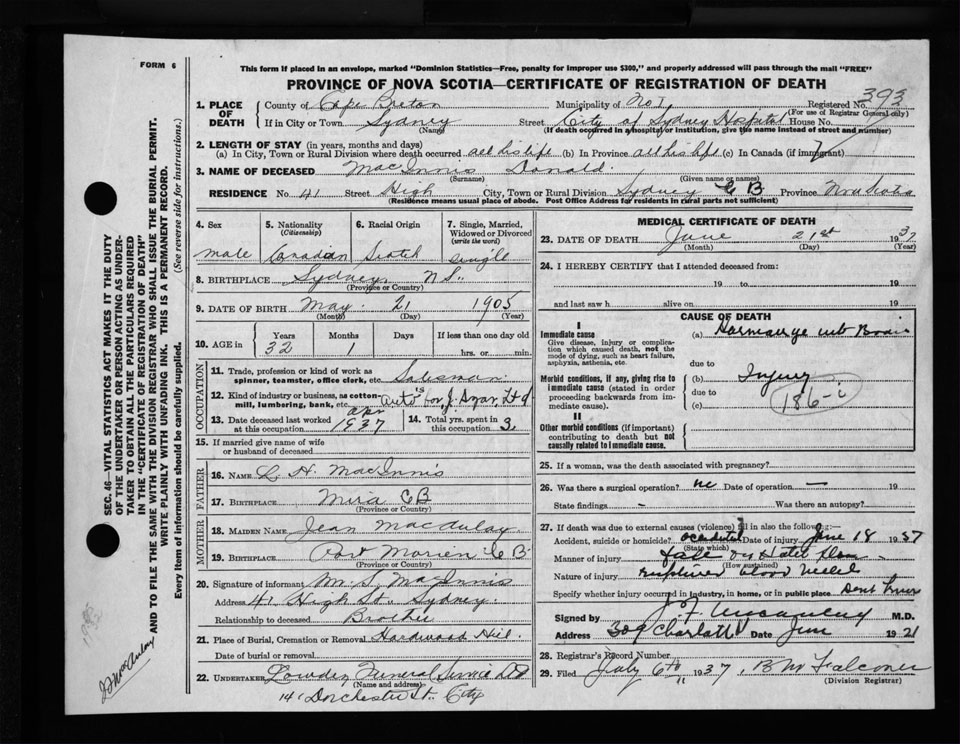 FORM 6
This form if placed in an envelope, marked "Dominion Statistics—Free, penalty for improper use $300," and properly addressed will pass through the mail "FREE"
PROVINCE OF NOVA SCOTIA—CERTIFICATE OF REGISTRATION OF DEATH
393
1. PLACE OF DEATH
County of Cape Breton Municipality of No 1 Registered No.
(For use of Registrar General only)
If in City or Town Sydney Street City of Sydney Hospital House No.
(Name) (If death occurred in a hospital or institution, give the name instead of street and number)
2. LENGTH OF STAY (in years, months and days)
(a) In City, Town or Rural Division where death occurred all his life (b) In Province all his life (c) In Canada (if immigrant)
3. NAME OF DECEASED MacInnis Donald
(Surname) (Given name or names)
RESIDENCE No. 41 Street High City, Town or Rural Division Sydney C B Province Nova Scotia
(Residence means usual place of abode. Post Office Address for residents in rural parts not sufficient)
4. Sex
5. Nationality (Citizenship)
6. Racial Origin
7. Single, Married, Widowed or Divorced (write the word)
male Canadian Scotch single
8. BIRTHPLACE Sydney N S.
(Province or Country)
9. DATE OF BIRTH May 21 1905
(Month) (Day) (Year)
10. AGE in
Years Months Days If less than one day old
32 1 hrs. or min.
OCCUPATION
11. Trade, profession or kind of work as spinner, teamster, office clerk, etc. Salesman
12. Kind of industry or business, as cotton-mill, lumbering, bank, etc. auto for J. Ltd
13. Date deceased last worked at this occupation apr 1937
14. Total yrs. spent in this occupation 3
15. If married give name of wife or husband of deceased
FATHER
16. NAME L. H. MacInnis
17. BIRTHPLACE Mira C B
(Province or Country)
MOTHER
18. MAIDEN NAME Jean MacAulay
19. BIRTHPLACE Port Morien C B
(Province or Country)
20. Signature of informant M. S. MacInnis
Address 41 High St. Sydney
Relationship to deceased Brother
21. Place of Burial, Cremation or Removal Hardwood Hill
Date of burial or removal
22. UNDERTAKER Lowden Funeral Service Ltd
(Name and address)
141 Dorchester St. City
MEDICAL CERTIFICATE OF DEATH
23. DATE OF DEATH June 21st 1937
(Month) (Day) (Year)
24. I HEREBY CERTIFY that I attended deceased from:
19 to 19
and last saw h alive on 19
CAUSE OF DEATH
I
Immediate cause
Give disease, injury or complication which caused death, not the mode of dying, such as heart failure, asphyxia, asthenia, etc.
(a) into Brain
due to
Morbid conditions, if any, giving rise to immediate cause (stated in order proceeding backwards from immediate cause).
(b) Injury
due to
186-
(c)
II
Other morbid conditions (if important) contributing to death but not causally related to immediate cause.
25. If a woman, was the death associated with pregnancy?
26. Was there a surgical operation? no Date of operation — 19
State findings - Was there an autopsy?
27. If death was due to external causes (violence) fill in also the following:
Accident, suicide or homicide? accidental Date of injury June 18 1937
(State which)
Manner of injury fall on
(How sustained)
Nature of injury ruptured blood vessel
Specify whether injury occurred in industry, in home, or in public place
Signed by M.D.
Address 309 Charlotte Date June 1921
28. Registrar's Record Number
29. Filed July 6th 1937 B M Falconer
(Division Registrar)
SEC. 46—VITAL STATISTICS ACT MAKES IT THE DUTY OF THE UNDERTAKER OR PERSON ACTING AS UNDERTAKER TO OBTAIN ALL THE PARTICULARS REQUIRED IN THE "CERTIFICATE OF REGISTRATION OF DEATH" AND TO FILE THE SAME WITH THE DIVISION REGISTRAR WHO SHALL ISSUE THE BURIAL PERMIT.
WRITE PLAINLY WITH UNFADING INK. THIS IS A PERMANENT RECORD.
Every item of information should be carefully supplied. (See reverse side for instructions.)